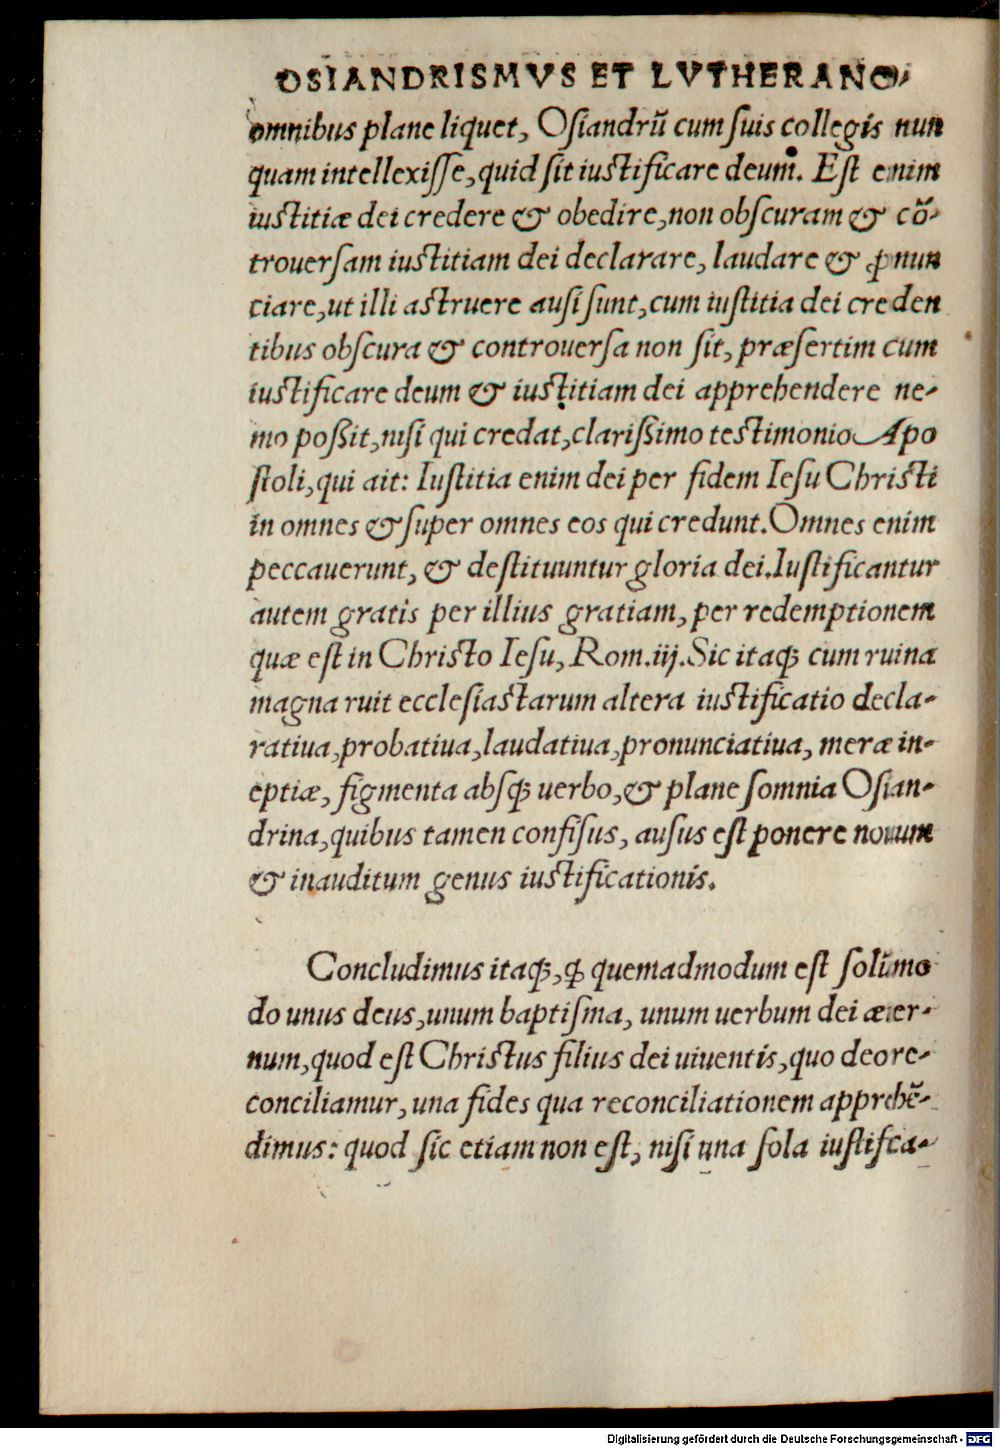 OSIANDRISMVS ET LVTHERANO⸗
omnibus plane liquet, Osiandrū cum suis collegis nun
quam intellexisse, quid sit iustificare deum. Est enim
iustitiæ dei credere & obedire, non obscuram & cō⸗
trouersam iustitiam dei declarare, laudare & ꝓnun
ciare, ut illi astruere ausi sunt, cum iustitia dei creden
tibus obscura & controuersa non sit, præsertim cum
iustificare deum & iustitiam dei apprehendere ne⸗
mo poßit, nisi qui credat, clarißimo testimonio Apo
stoli, qui ait: Iustitia enim dei per fidem Iesu Christi
in omnes & super omnes eos qui credunt. Omnes enim
peccauerunt, & destituuntur gloria dei. Iustificantur
autem gratis per illius gratiam, per redemptionem
quæ est in Christo Iesu, Rom. iij. Sic itaq; cum ruina
magna ruit ecclesiastarum altera iustificatio decla⸗
ratiua, probatiua, laudatiua, pronunciatiua, meræ in⸗
eptiæ, figmenta absq; uerbo, & plane somnia Osian⸗
drina, quibus tamen confisus, ausus est ponere nouum
& inauditum genus iustificationis.
Concludimus itaq;, ꝙ quemadmodum est solūmo
do unus deus, unum baptisma, unum uerbum dei æter⸗
num, quod est Christus filius dei uiuentis, quo deo re⸗
conciliamur, una fides qua reconciliationem apprehē⸗
dimus: quod sic etiam non est, nisi una sola iustifca⸗
Digitalisierung gefördert durch die Deutsche Forschungsgemeinschaft - DFG